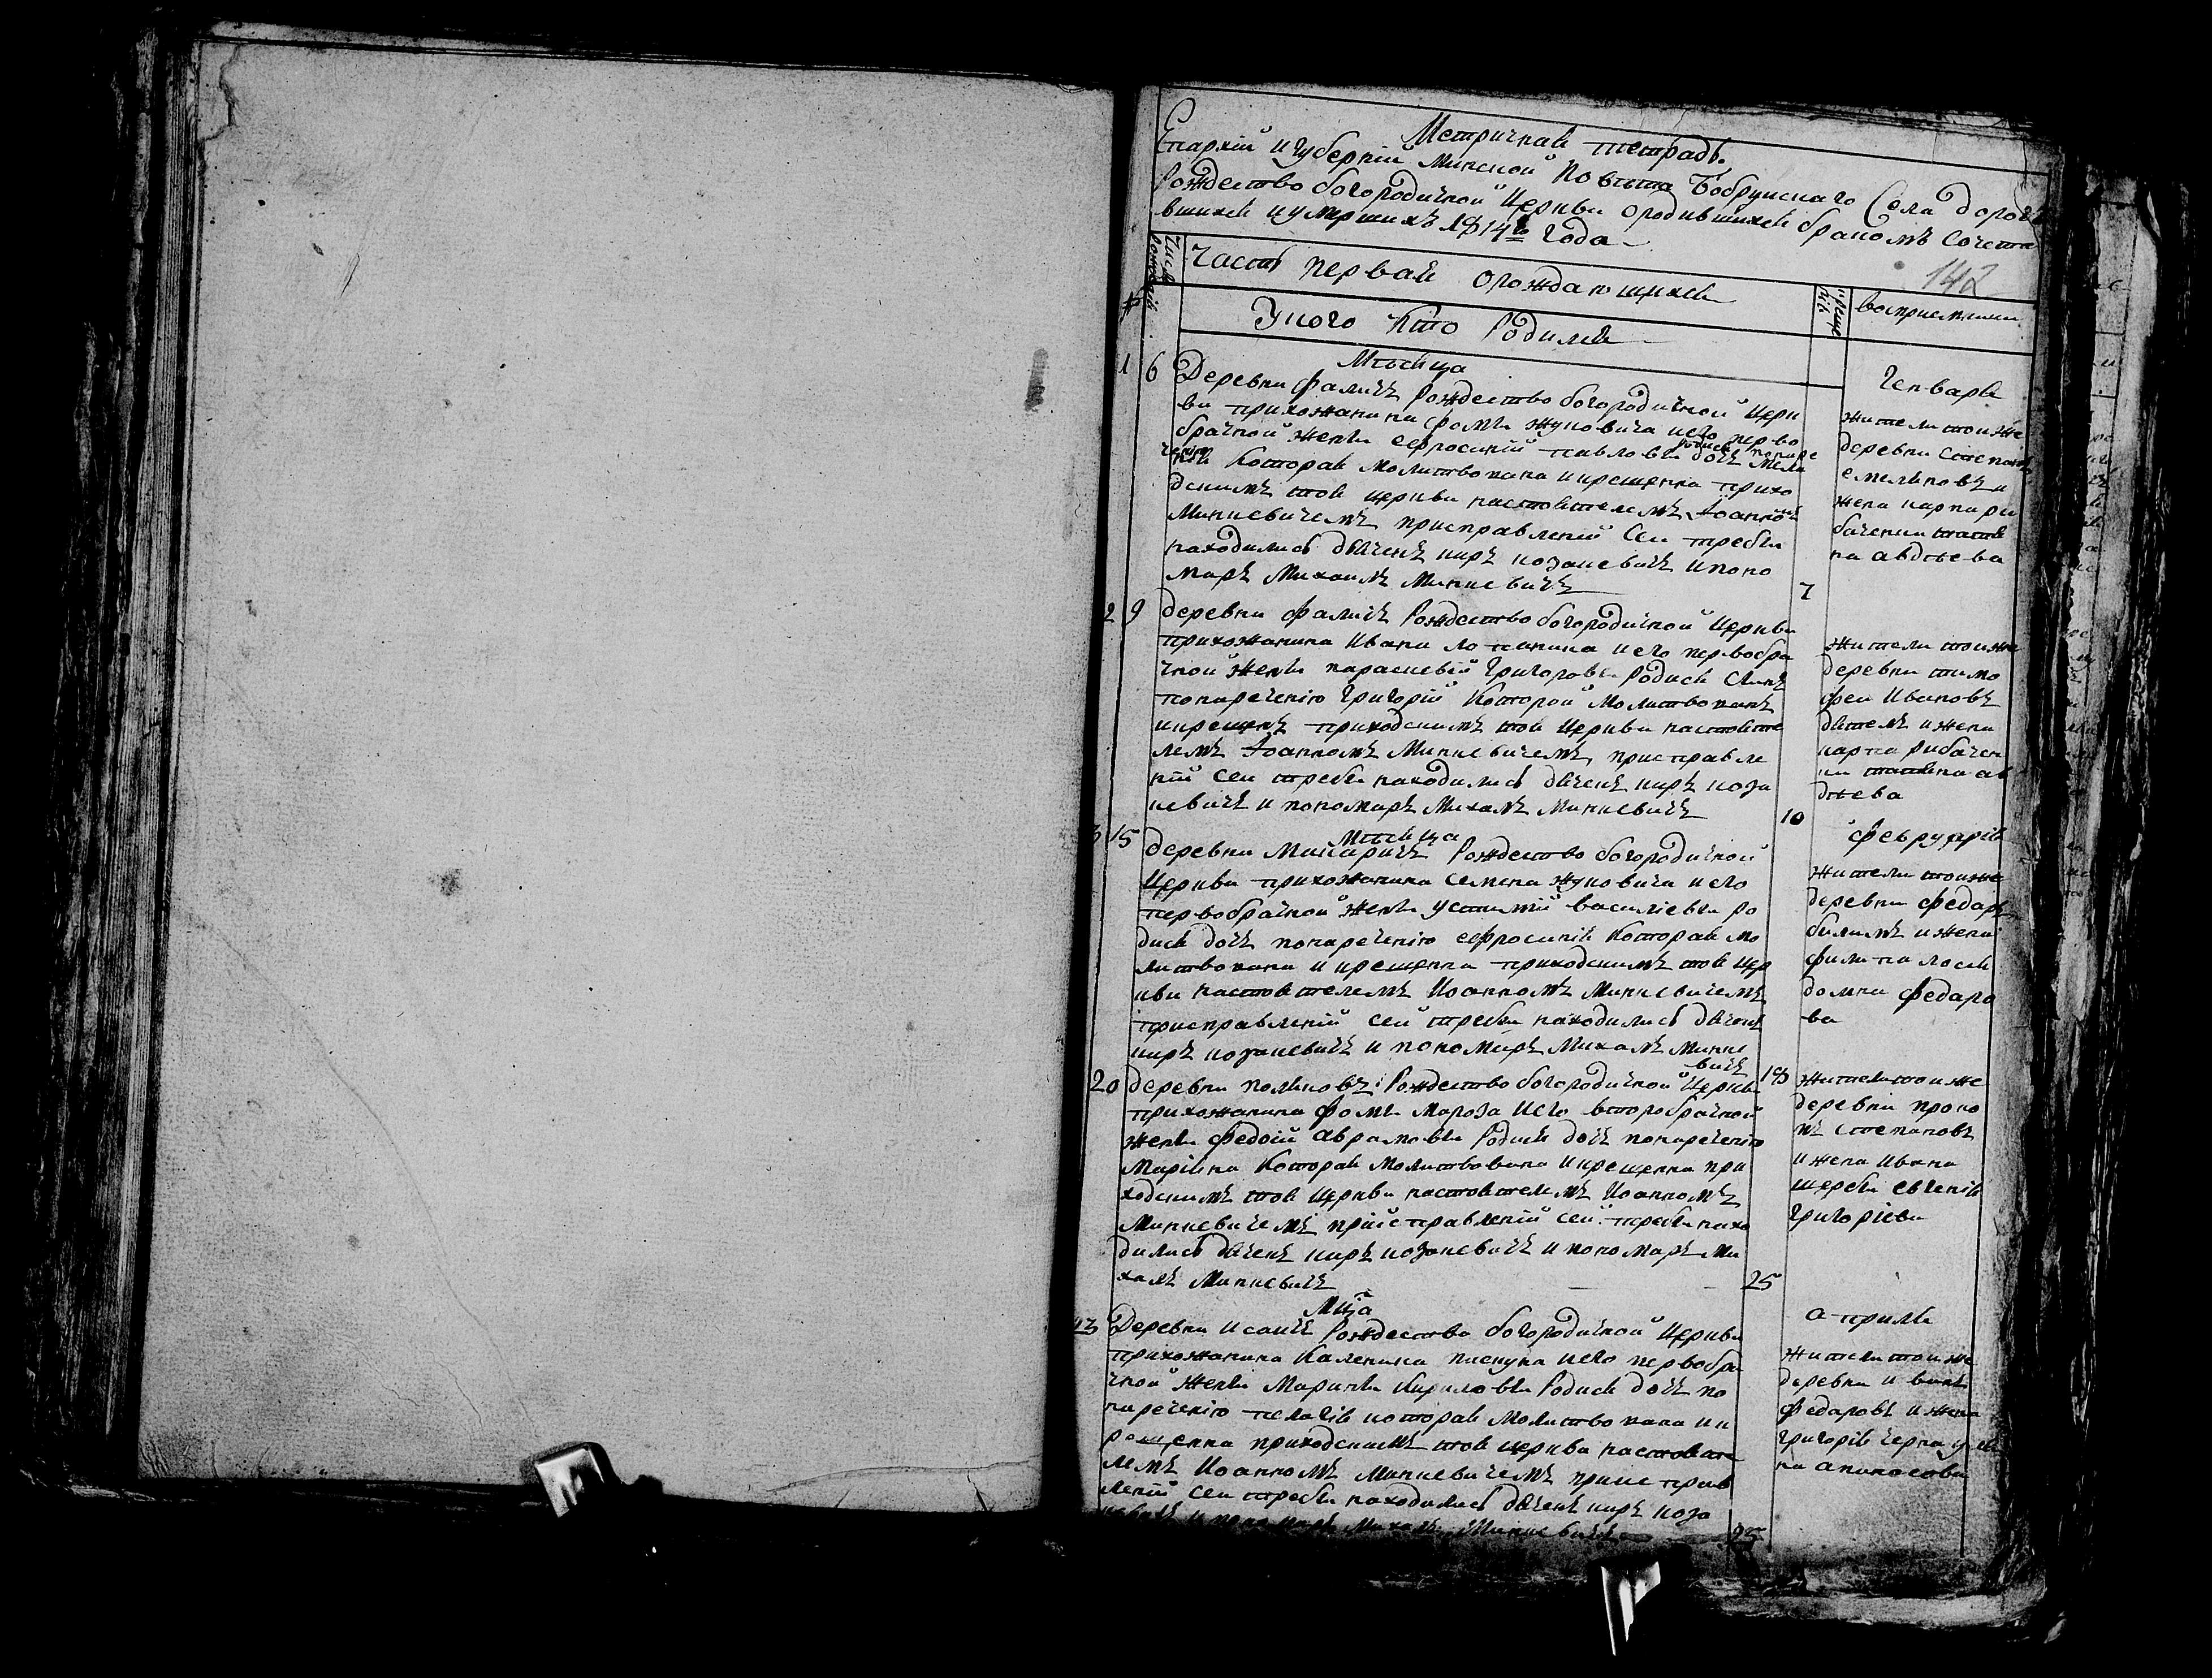 Метричная тетрадь.
Епархіи и губерніи Минской Повѣта Бобруйскаго Села
Рождество богородичной Церкви ородившихся бракомъ Сочета
вшихся иумершихъ 1814го Года
142
Число рожденій
Часть первая орождающихся
Крещенія
восприемники
Укого Кто Родился
Мѣсяца
Генваря
1
6
Деревни фаличъ Рождество богородичной Церк
ви прихожанина фомы жуковича иего перво
брачной жены ефросиніи павловы родися дочъ
Которая молитвована икрещенна прихо
дскимъ тоя церкви настоятелемъ Іоанномъ
Минкевичемъ приисправленіи Сеи требы
находились дьячекъ киръ козакевичъ ипоно
марь Михаилъ Минкевичъ
7
жители тоиже
деревни степанъ
емельяновъ и
жена карпа ры
баченки татья
на авдѣева
2
9
деревни фаличъ Рождество богородичной Церкви
прихожанина Ивана лопанина иего первобра
чной жены параскевіи Григоровы Родися Сынъ
понареченію Григорій Которой молитвованъ
икрещенъ приходскимъ тоя Церкви настояте
лемъ Іоанномъ Минкевичемъ, приисправле
ніи Сеи требы находились дьячекъ киръ коза
кевичъ и пономарь Михалъ Минкевичъ
10
жители тоиже
деревни тимо
феи Ивановъ
дятелъ ижена
карпа рибачен
ки татьяна ав
дѣева
Мѣсяца
февруария
3
15
деревни Макаричъ Рождество богородичной
Церкви прихожанина семена жуковича иего
первобрачной жены устиміи василіевы Ро
дися дочъ понареченію ефросинія Которая мо
литвована икрещенна приходскимъ тоя Цер
кви настоятелемъ Иоанномъ Минкевичемъ
приисправленіи сеи требы находились дьячекъ
киръ козакевичъ и пономарь Михалъ Минке
вичъ
18
жители тоиже
деревни федаръ
ижена
филипа лося
домна федаро
ва
20
деревни поляковъ Рождество богородичной Церкви
прихожанина фомы мороза иего второбрачной
жены федосіи аврамовы Родися дочъ понареченію
Маріяна Которая молитвована икрещенна при
ходскимъ тоя Церкви настоятелемъ Иоанномъ
Минкевичемъ приисправленіи сеи требы нахо
дились дьячекъ киръ козакевичъ и пономарь Ми
халъ Минкевичъ
25
жители тоиже
деревни проко
пъ степановъ
ижена Ивана
щербы евгенія
григоріева
Мца
априля
23
Деревни исаичъ Рождества богородичной Церкви
прихожанина Каленика пискуна иего первобра
чной жены Марины Кириловы Родися дочъ по
нареченію пелагія которая молитвована ик
рещенна приходскимъ тоя церкви настояте
лемъ Иоанномъ Минкевичемъ приисправ
леніи сеи требы находились дьячекъ киръ коза
кевичъ и пономарь Михалъ Минкевичъ
25
жители тоиже
деревни иванъ
федаровъ ижена
григорія